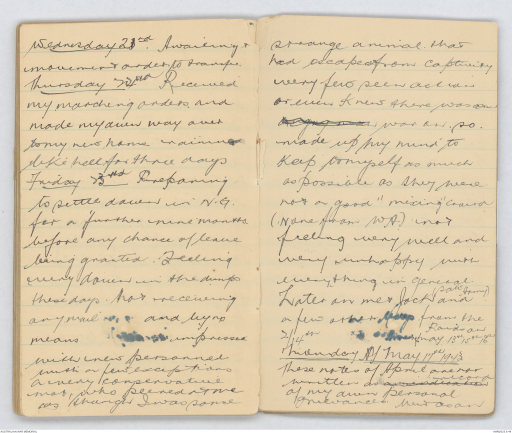 Wednesday 21st. Awaiting
movement order to
Thursday 22nd Received
my marching orders and
made my own way over
to my new home
like hell for three days
Friday 23rd Preparing
to settle down in N.G.
for a further nine months
before any chance of leave
being granted. Feeling
very down in the dumps
these days. Not receiving
any mail and by no
means impressed
with new personnel
with a few exceptions
a very conservative
lot, who stared at me
as though I was some
strange animal that
had escaped from captivity
very few seen action
or even knew there was one
war on. so.
made up my mind to
keep to myself as much
as possible as they were
not a good "mixing" crowd
(None from WA) not
feeling very well and
very unhappy with
everything in general
Later on met Jack and
a few other from the
2/14th
Monday May 17th 1943
These notes of April are
written
of my own personal
grievances